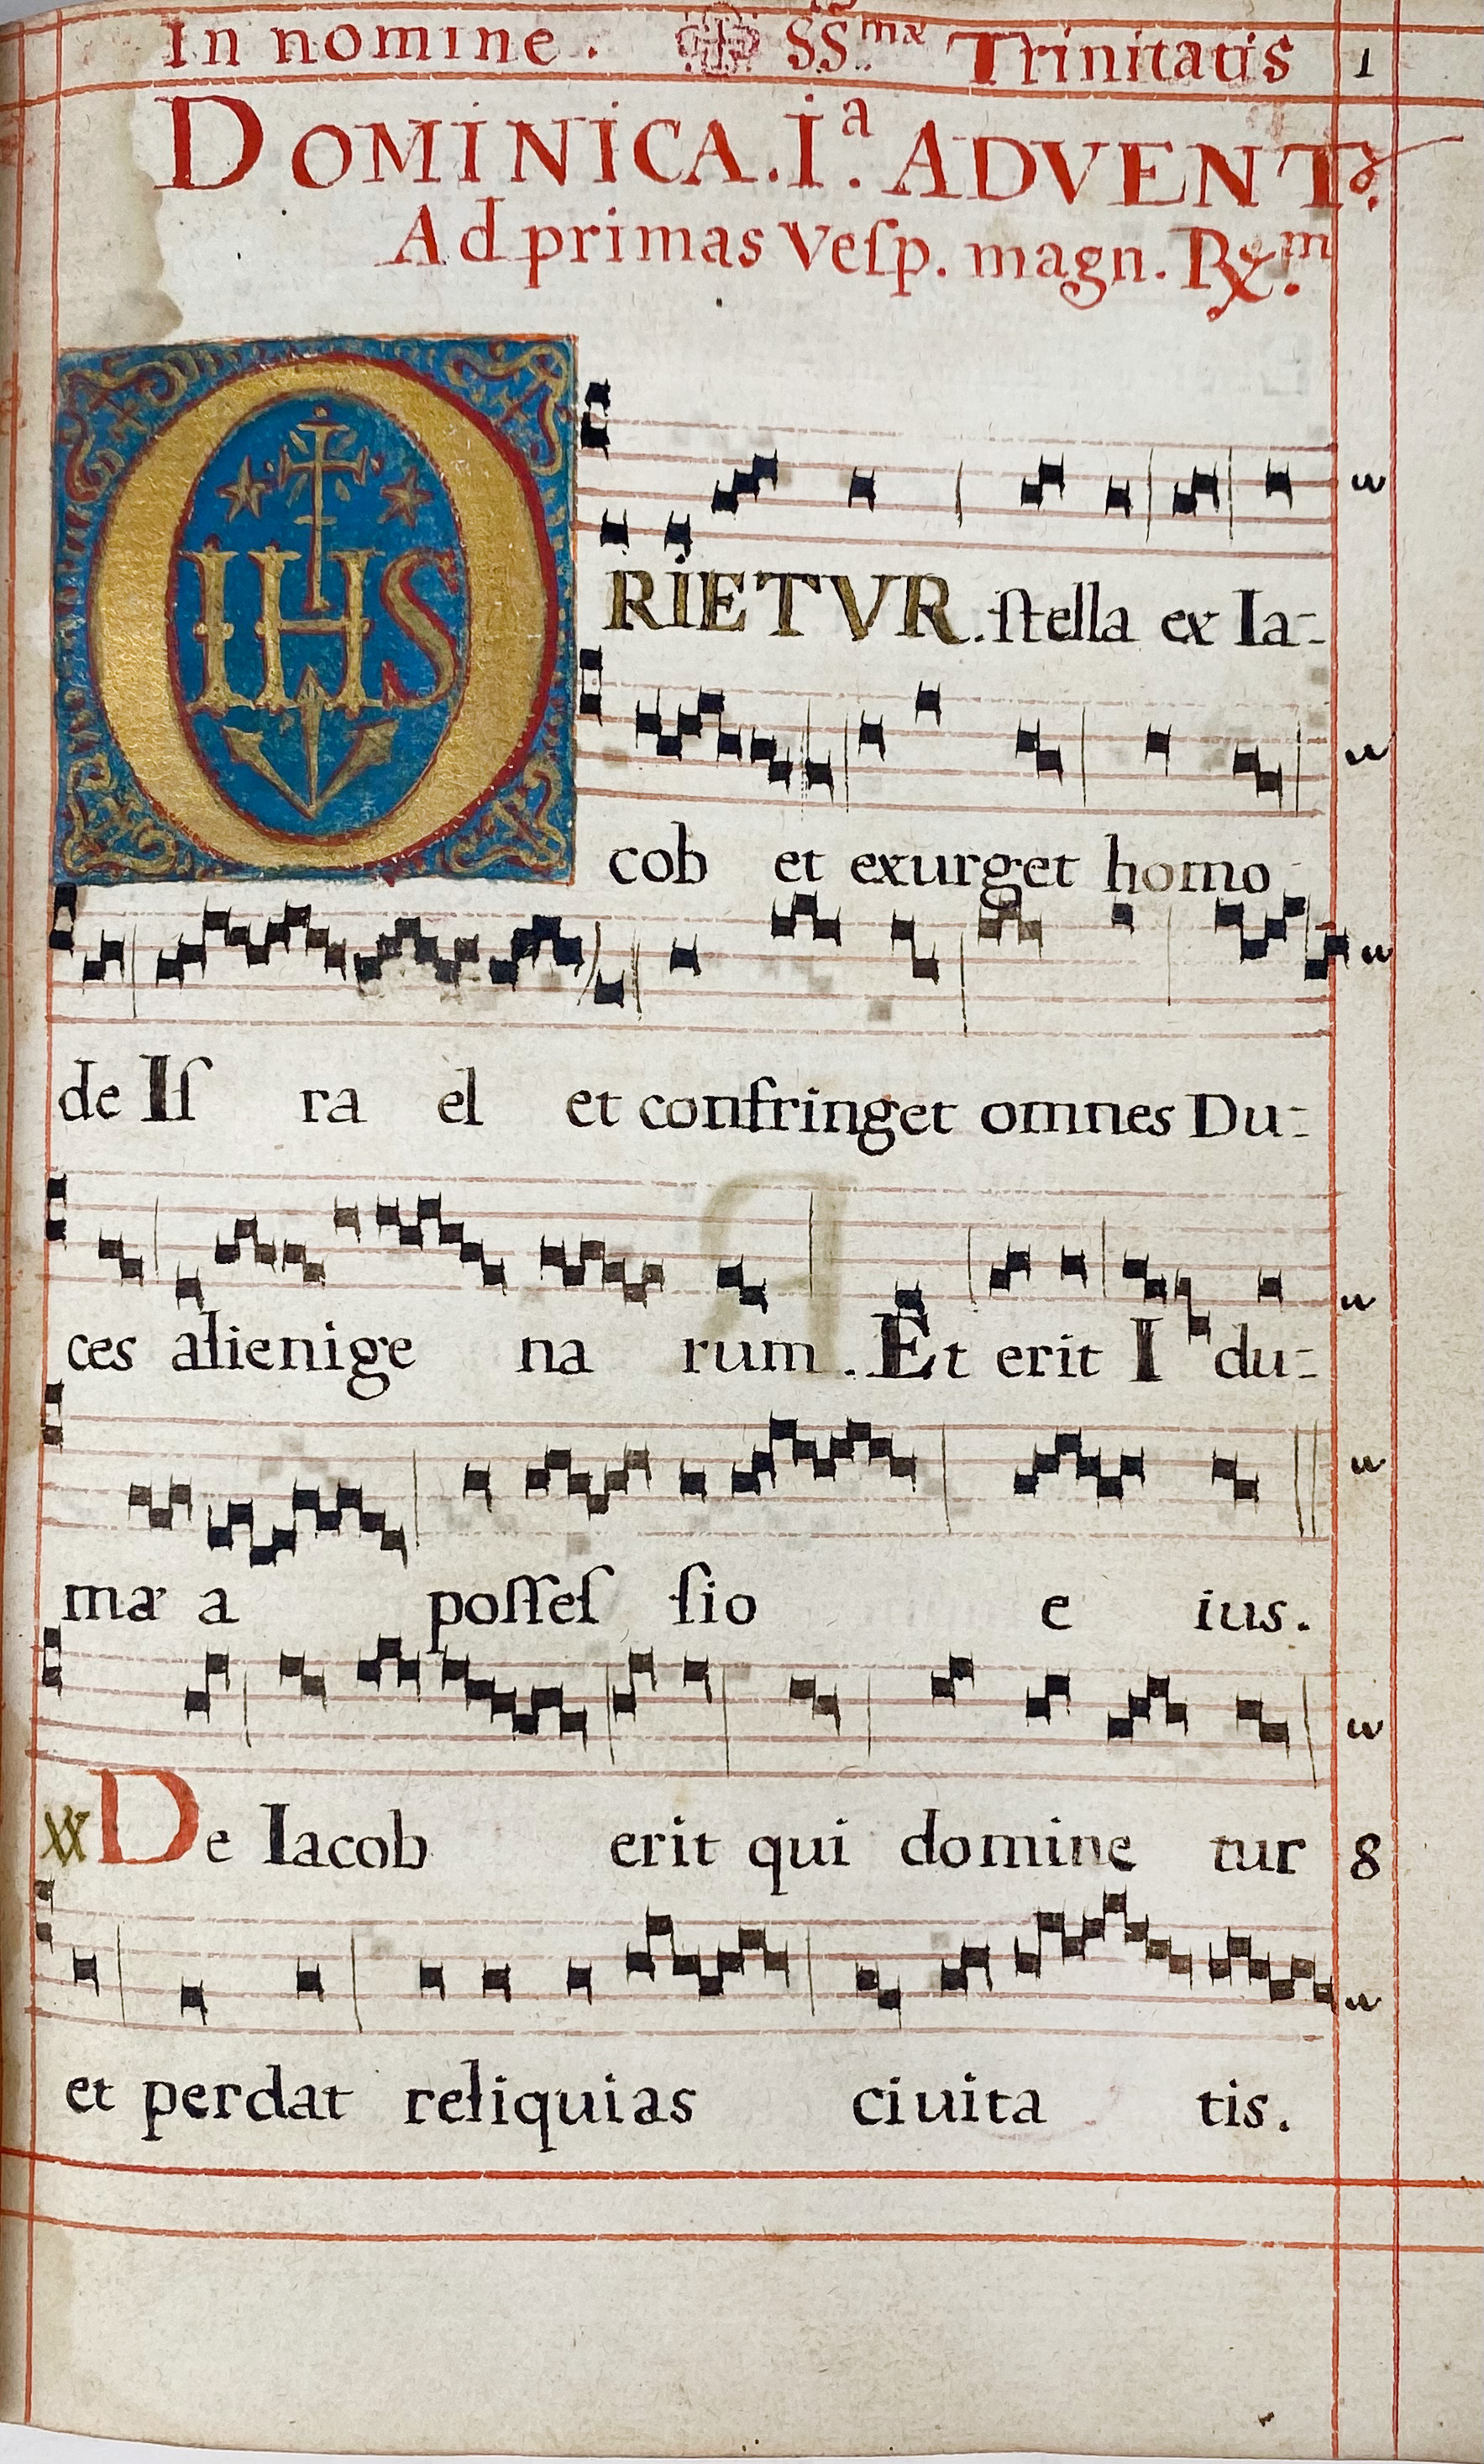 In nomine. SS.mæ Trinitatis 1
DOMINICA.Ia. ADVENT9.
Ad primas Veſp. magn. R℣.m
IHS
ORIETVR. ſtella ex Ia-
cob et exurget homo
de Iſ ra el et confringet omnes Du-
ces alienige na rum. Et erit I du-
mæ a poſſeſ ſio e ius.
℣ De Iacob erit qui domine tur 8
et perdat reliquias ciuita tis.